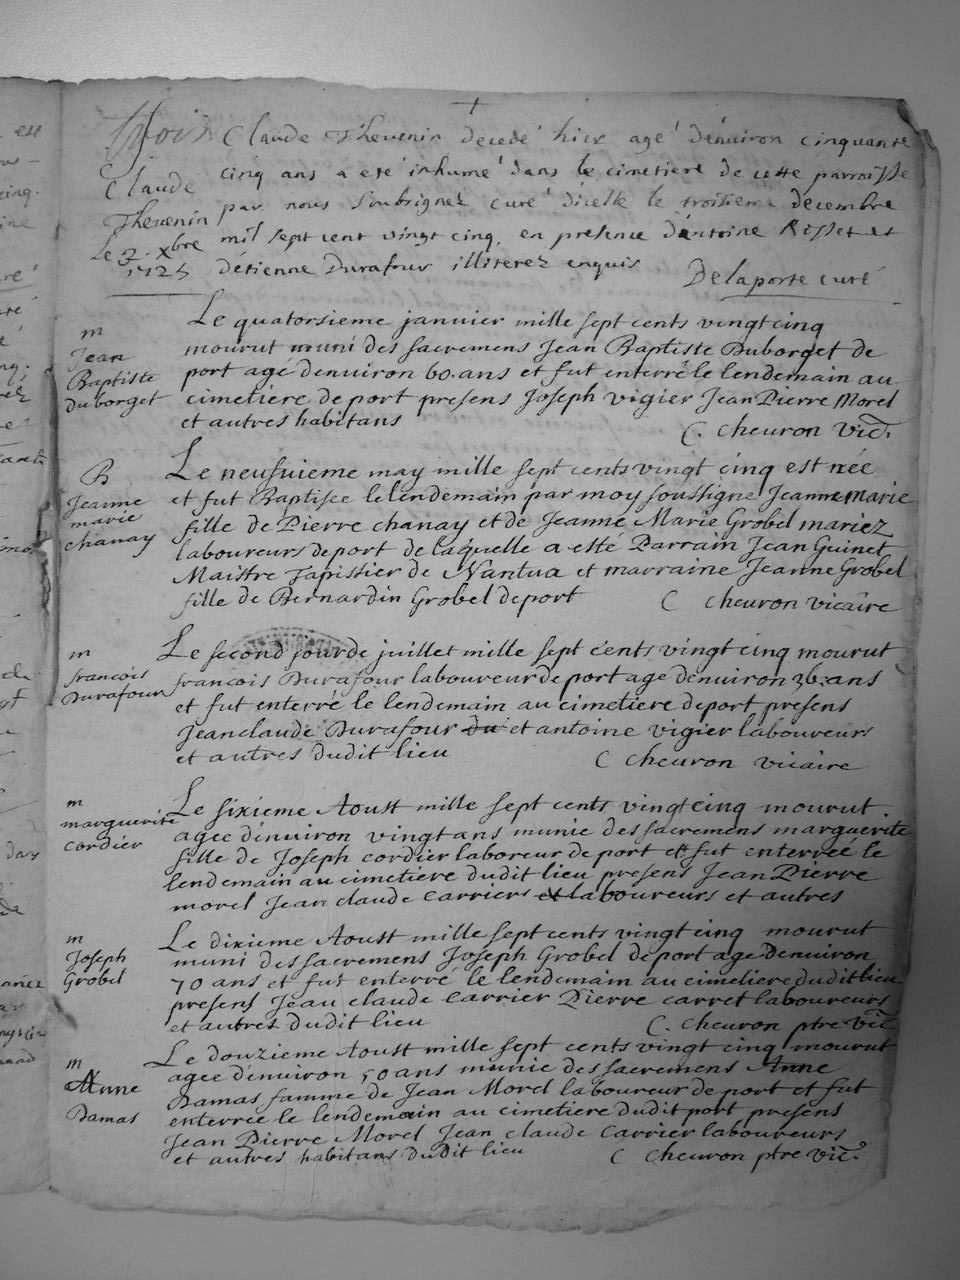 Claude Thevenin decedé hier agé d'environ cinquante
Claude
cinq ans a eté inhumé dans le cimetiere de cette parroisse
Thevenin
par nous Soubsignez curé d'icelle le troisieme decembre
Le 3. xbre
1725
mil sept cent vingt cinq, en presence d'antoine Rissetet
d'etienne Durafour illiterez enquis Delaporte curé
Le quatorsieme janvier mille sept cents vingtcinq
m
Jean
Baptiste
duborget
mourut muni des sacremens Jean Baptiste Duborget de
port agé denviron 60. ans et fut enterré le lendemain au
cimetiere de port presens Joseph vigier Jean Pierre Morel
et autres habitans C. cheuron vic.
B
Jeanne
marie
chanay
Le neufuieme may mille sept cents vingt cinq est née
et fut Baptisee le lendemain par moy soussigne Jeanne marie
fille de Pierre chanay et de Jeanne Marie Grobel mariez
laboureurs de port de laquelle a esté Parrain Jean Guinet
Maistre Tapissier de Nantua et marraine Jeanne Grobel
fille de Bernardin Grobel de port C cheuron vicaire
m
francois
Durafour
Le second jour de juillet mille sept cents vingt cinq mourut
francois Durafour laboureur de port age denuiron 36: ans
et fut enterré le lendemain au cimetiere de port presens
Jean claude Durafour du et antoine vigier laboureurs
et autres dudit lieu C cheuron vicaire
m
marguerite
cordier
Le sixieme Aoust mille sept cents vingt cinq mourut
agee d'enuiron vingt ans munie des sacremens marguerite
fille de Joseph cordier laboreur de port et fut enterrée le
lendemain au cimetiere dudit lieu presens Jean Pierre
morel Jean claude Carriers et laboureurs et autres
m
Joseph
Grobel
Le dixieme Aoust mille sept cents vingt cinq mourut
muni des sacremens Joseph Grobel de port age denviron
70 ans et fut enterré le lendemain au cimetiere dudit lieu
presens Jean claude Carrier Pierre carret laboureurs
et autres dudit lieu C. cheuron ptre vic
m
Anne
Damas
Le douzieme Aoust mille sept cents vingt cinq mourut
agee d'enuiron 50 ans munie des sacremens Anne
Damas famme de Jean Morel laboureur de port et fut
enterrée le lendemain au cimetiere dudit port presens
Jean Pierre Morel Jean claude Carrier laboureurs
et autres habitans dudit lieu C cheuron ptre vic.